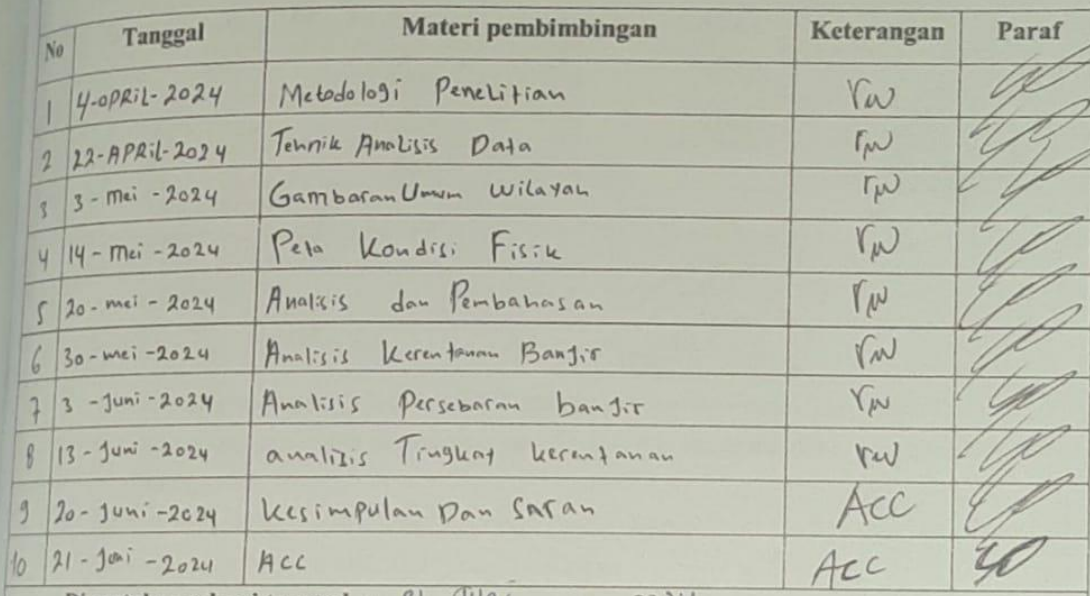 No Tanggal Materi pembimbingan Keterangan Paraf
1 4-APRIL-2024 Metodologi Penelitian rw
2 22-APRIL-2024 Tehnik Analisis Data rw
3 3-Mei-2024 Gambaran Umum Wilayah rw
4 14-Mei-2024 Peta Kondisi Fisik rw
5 20-mei-2024 Analisis dan Pembahasan rw
6 30-mei-2024 Analisis Kerentanan Banjir rw
7 3-Juni-2024 Analisis Persebaran banjir rw
8 13-Juni-2024 analisis Tingkat kerentanan rw
9 20-Juni-2024 Kesimpulan Dan Saran ACC
10 21-Juni-2024 ACC ACC